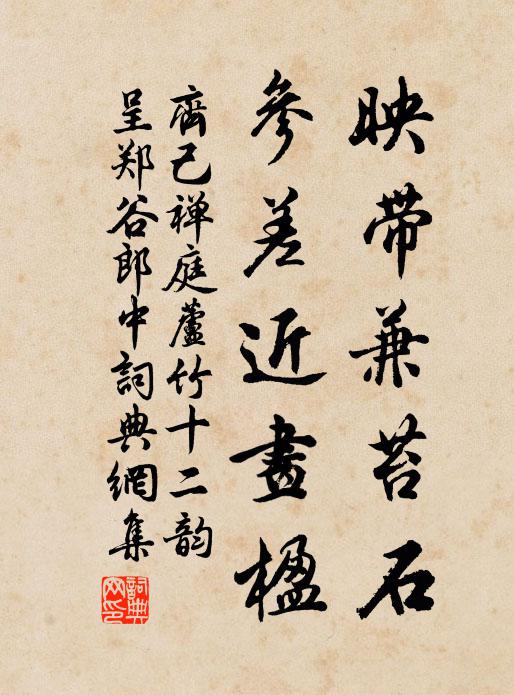 映带兼苔石
參差近畫楹
齊己禅庭蘆竹十二韵
呈郑谷郎中詞典網集
詞典網印